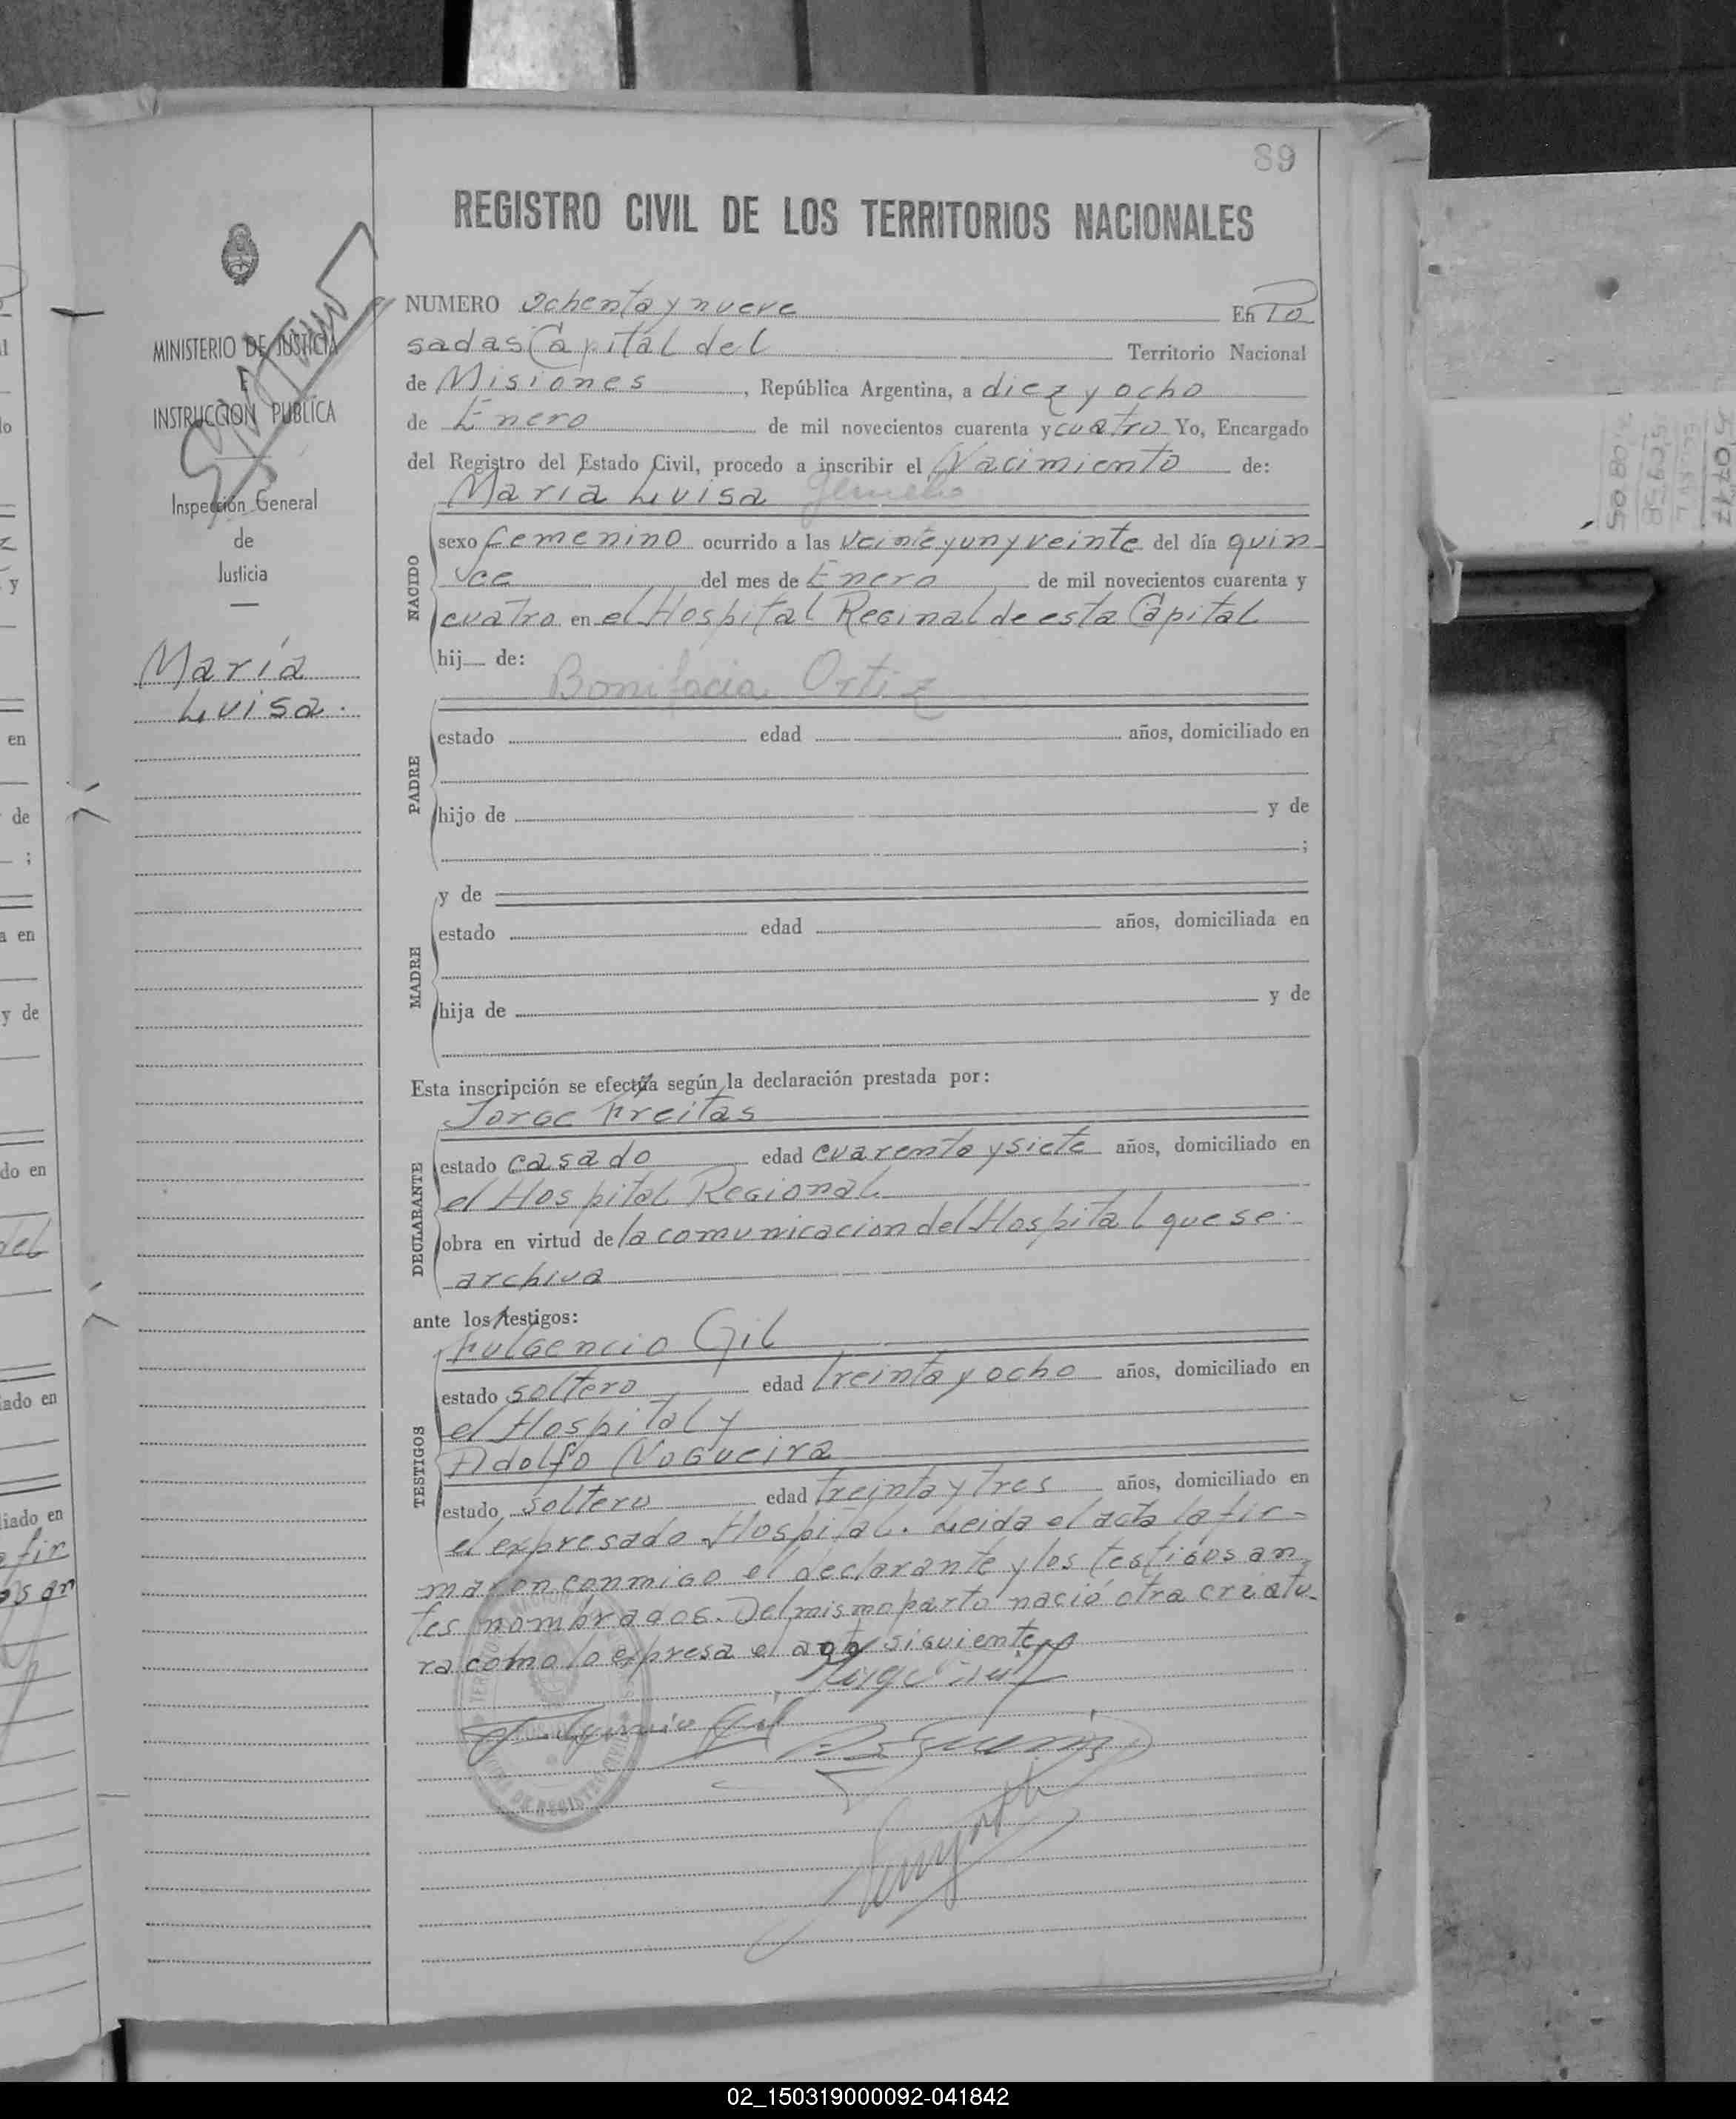 89
REGISTRO CIVIL DE LOS TERRITORIOS NACIONALES
MINISTERIO DE JUSTICIA
E
INSTRUCCION PUBLICA
Inspección General
de
Justicia
María
Luisa.
NUMERO Ochenta y nueve En Po
sadas Capital del Territorio Nacional
de Misiones, República Argentina, a diez y ocho
de Enero de mil novecientos cuarenta y cuatro Yo, Encargado
del Registro del Estado Civil, procedo a inscribir el Nacimiento de:
María Luisa Gemelo
NACIDO
sexo femenino ocurrido a las veinte y un y veinte del día quin
ce del mes de Enero de mil novecientos cuarenta y
cuatro en el Hospital Reginal de esta Capital
hij de:
Bonifacia Ortiz
PADRE
estado edad años, domiciliado en
hijo de y de
;
y de
MADRE
estado edad años, domiciliada en
hija de y de
Esta inscripción se efectúa según la declaración prestada por:
Jorge Freitas
DECLARANTE
estado casado edad cuarenta y siete años, domiciliado en
el Hospital Regional
obra en virtud de la comunicacion del Hospital que se
archiva
ante los testigos:
Fulgencio Gil
TESTIGOS
estado soltero edad treinta y ocho años, domiciliado en
el Hospital y
Adolfo Nogueira
estado soltero edad treinta y tres años, domiciliado en
el expresado Hospital. Leida el acta la fir-
maron conmigo el declarante y los testigos an
tes nombrados. Del mismo parto nació otra criatu-
ra como lo expresa el acta siguiente
Fulgencio Gil
02_150319000092-041842